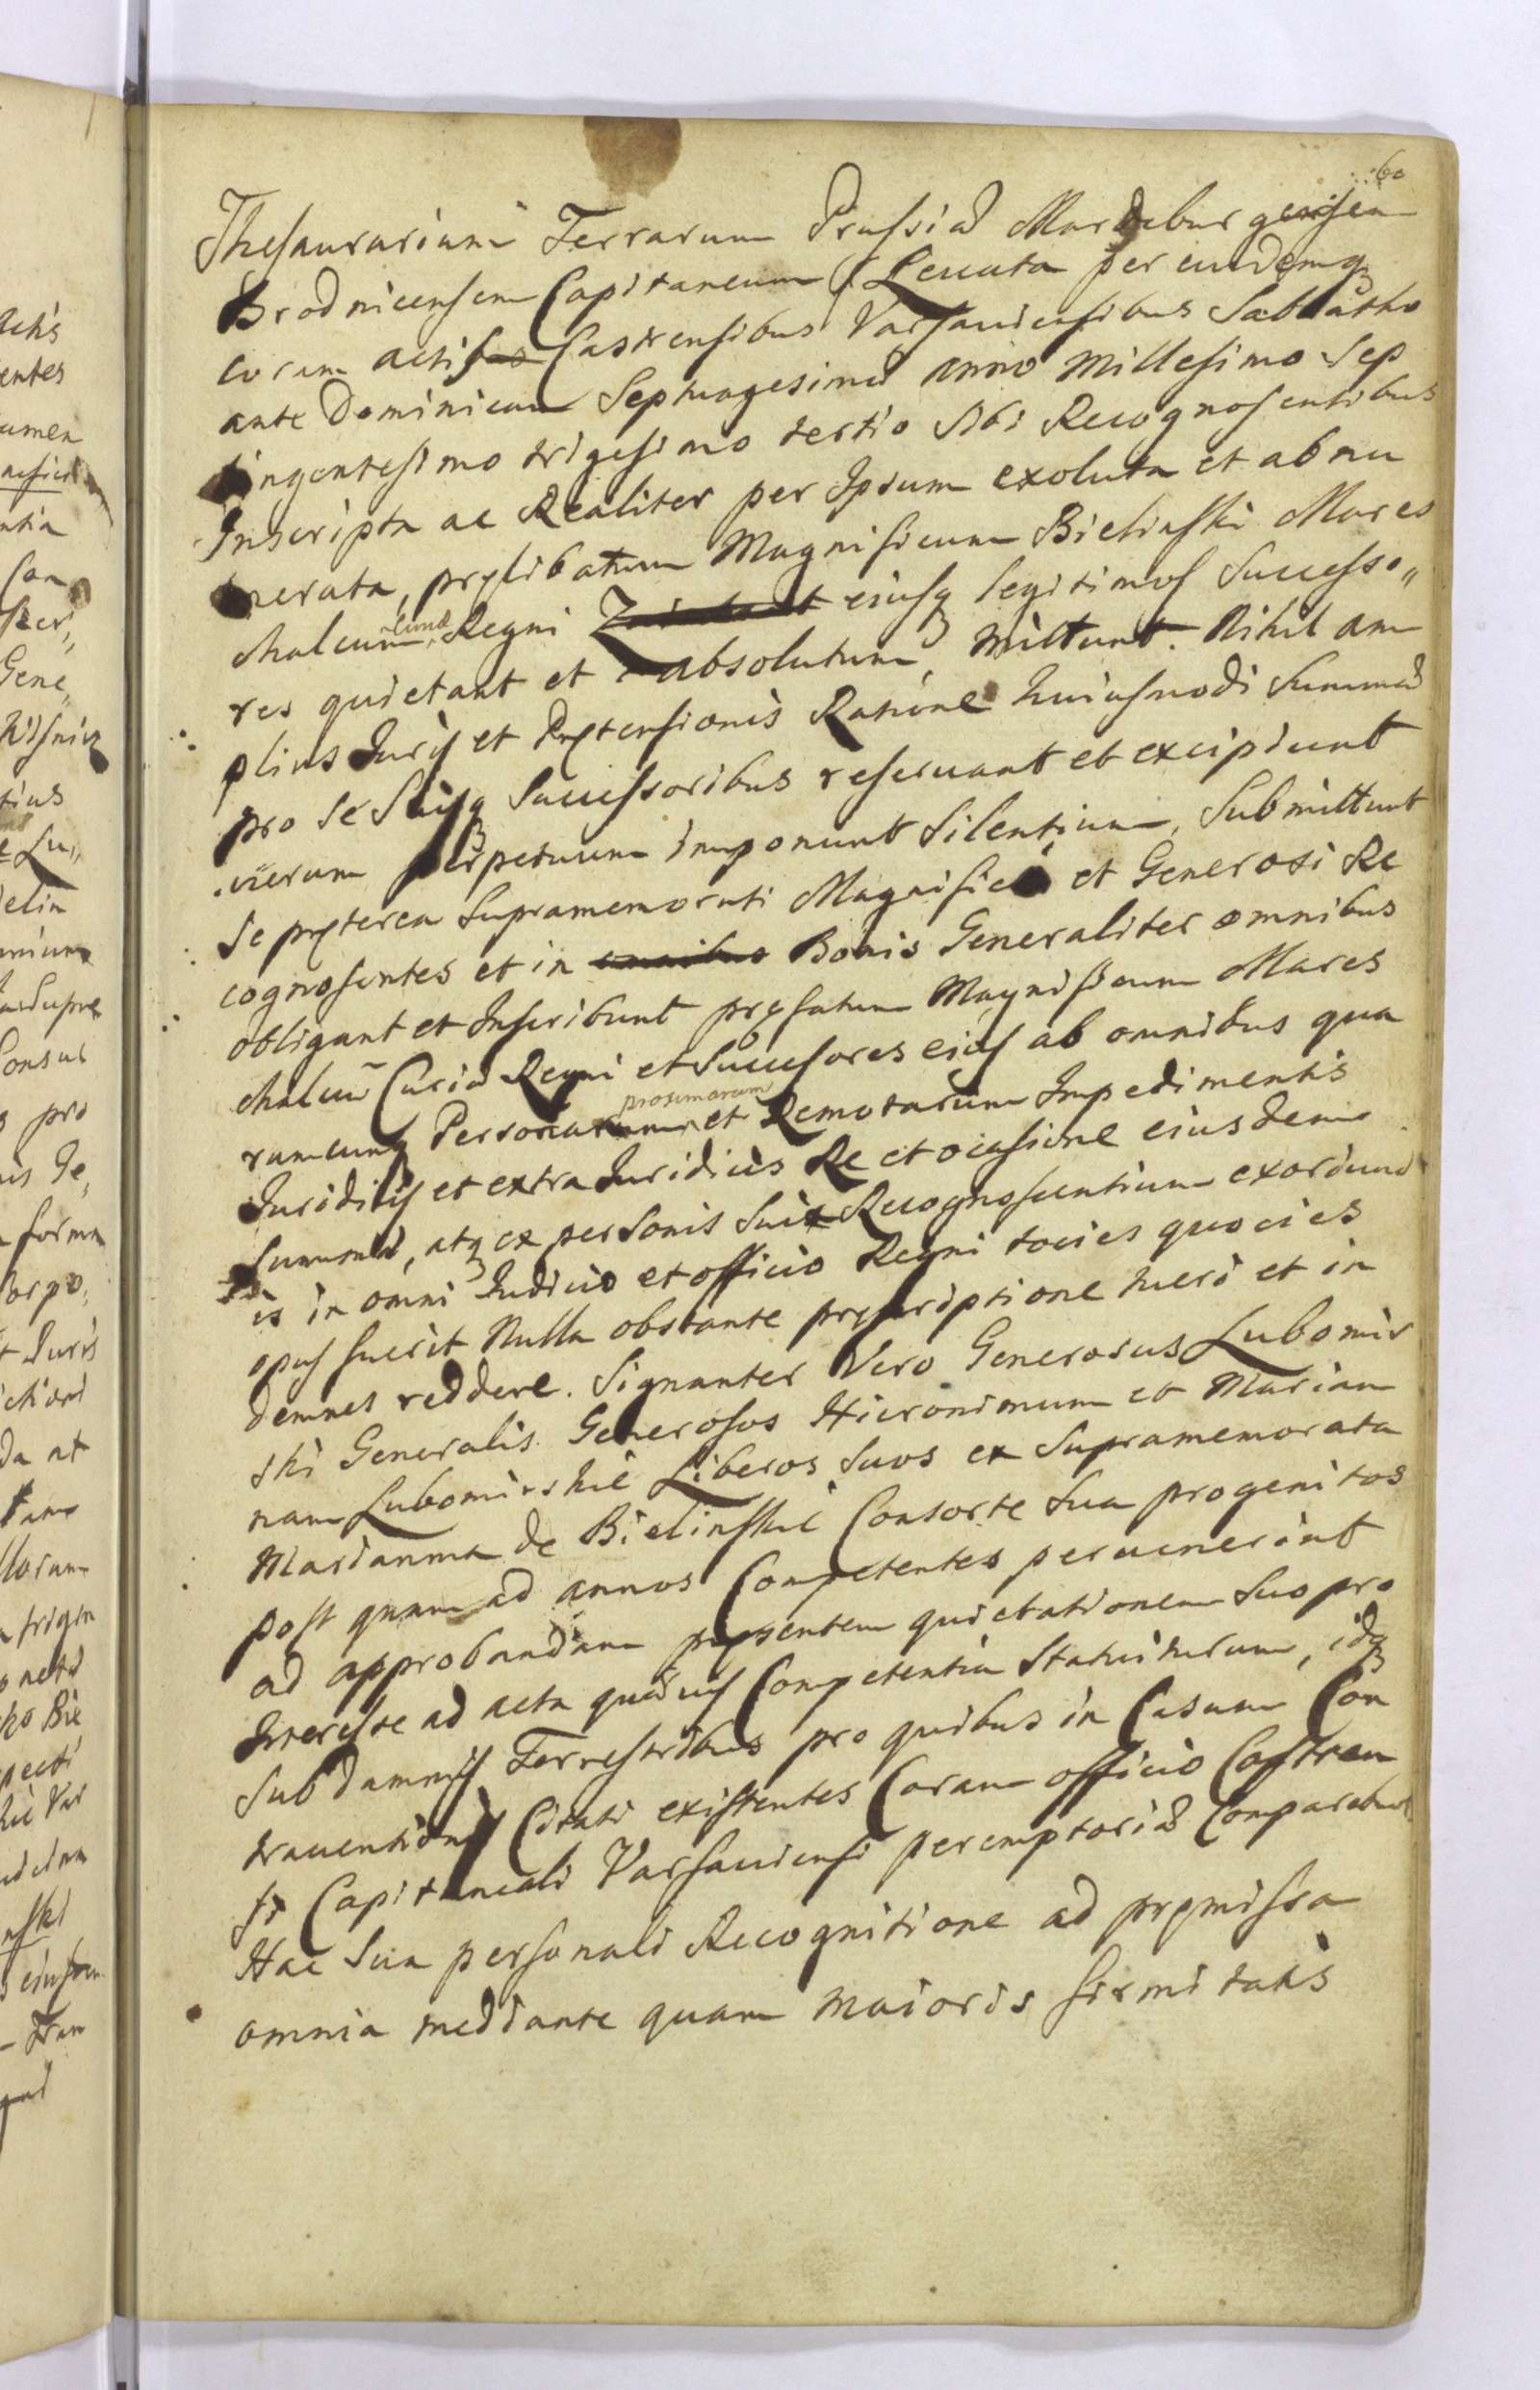 60
Thesaurarium Terrarum Prussiæ Mardeburgensem
Brodnicensem Capitaneum Levata per eundemq
coram actis Castrensibus Varsaviensibus Sabbatho
ante Dominicam Septuagesimæ anno Millesimo Sep
tingentesimo trigesimo tertio sibi Recognoscentibus
Inscripta ac Realiter per Ipsum exoluta et abnu
merata, pręlibatum Magnificum Bielinski Mares
chalcum Regni eiusq legitimos Successo„
res quietant et absolutum mittunt. Nihil am
plius Juris et Prętensionis Ratione huiusmodi Summæ
pro se suisq Successoribus reservant et excipiunt
verum perpetuum imponunt Silentium, Submittunt
se pręterea Supramemorati Magnifici et Generosi Re
cognoscentes et in omnibus Bonis Generaliter omnibus
obligant et Inscribunt pręfatum Magnificum Mares
chalcū Curiæ Regni et Successores eius ab omnibus qua
rumcunq Personarum proximarum et Remotarum Impedimentis
Juridicis et extra Juridicis Re et ocasione eiusdem
Summæ, atq ex personis Suis Recognoscentium exoriund
is in omni Judicio et officio Regni tocies quocies
opus fuerit Nulla obstante pręscriptione tueri et in
demnes reddere. Signanter Vero Generosus Lubomir
ski Generalis Generosos Hieronimum et Marian
nam Lubomirskie Liberos Suos ex Supramemorata
Marianna de Bielinskie Consorte Sua progenitos
post quam ad annos Competentes pervenerint
ad approbandam pręsentem quietationem Suo pro
Interesse ad acta quævis Competentia Statuiturum, idq
sub damnis Terrestribus pro quibus in Casum Con
traventionis Citati existentes Coram officio Castren
si Capitaneali Varsaviensi peremptorie Comparebunt
Hac Sua personali Recognitione ad pręmissa
omnia mediante quam maioris firmitatis